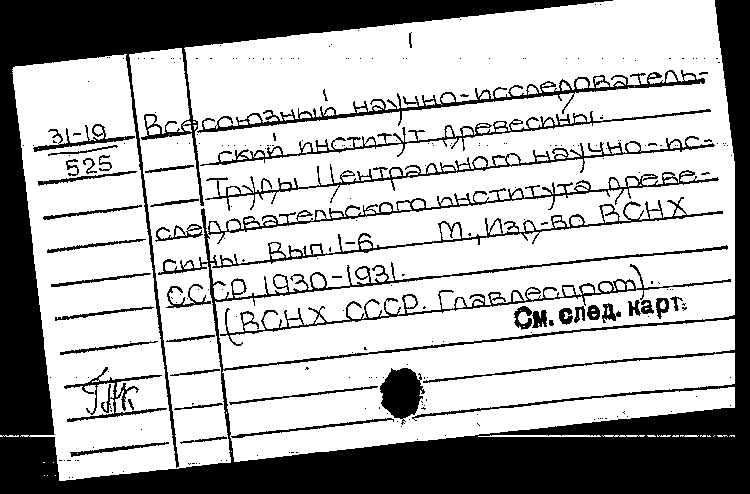 1
31-19
525
Всесоюзный научно-исследователь-
ский институт древесины.
Труды Центрального научно-ис-
следовательского института древе-
сины. Вып. 1-6. М., Изд-во ВСНХ
СССР, 1930-1931.
(ВСНХ СССР. Главлеспром).
См. след. карт.